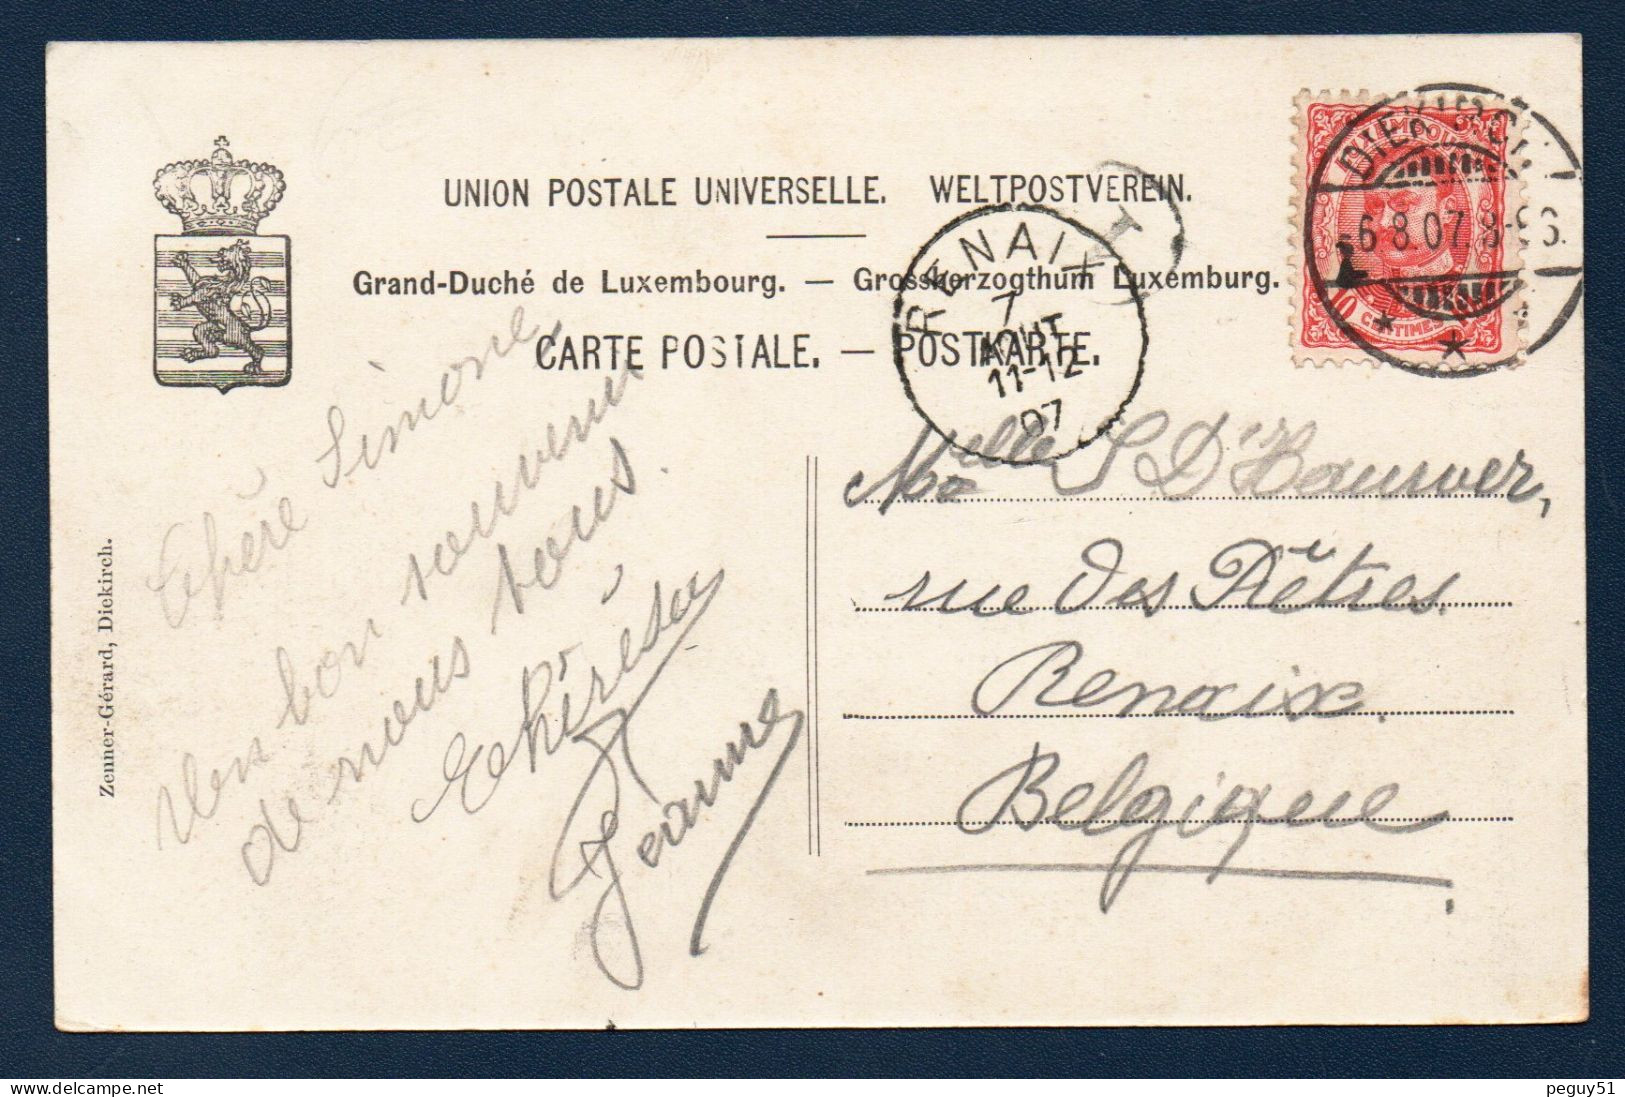 UNION POSTALE UNIVERSELLE. WELTPOSTVEREIN.
Grand-Duché de Luxembourg. — Grossherzogthum Luxemburg.
CARTE POSTALE. — POSTKARTE.
RENAIX
7
AOUT
11-12
07
DIEKIRCH
6.8.07. 8-9 S.
10 CENTIMES
T
Chère Simone,
bon souvenir
de nous tous.
Thérèse
Jeanne
Zenner-Gérard, Diekirch.
Melle S D'Hauwer,
rue des Prêtres.
Renaix.
Belgique
peguy51